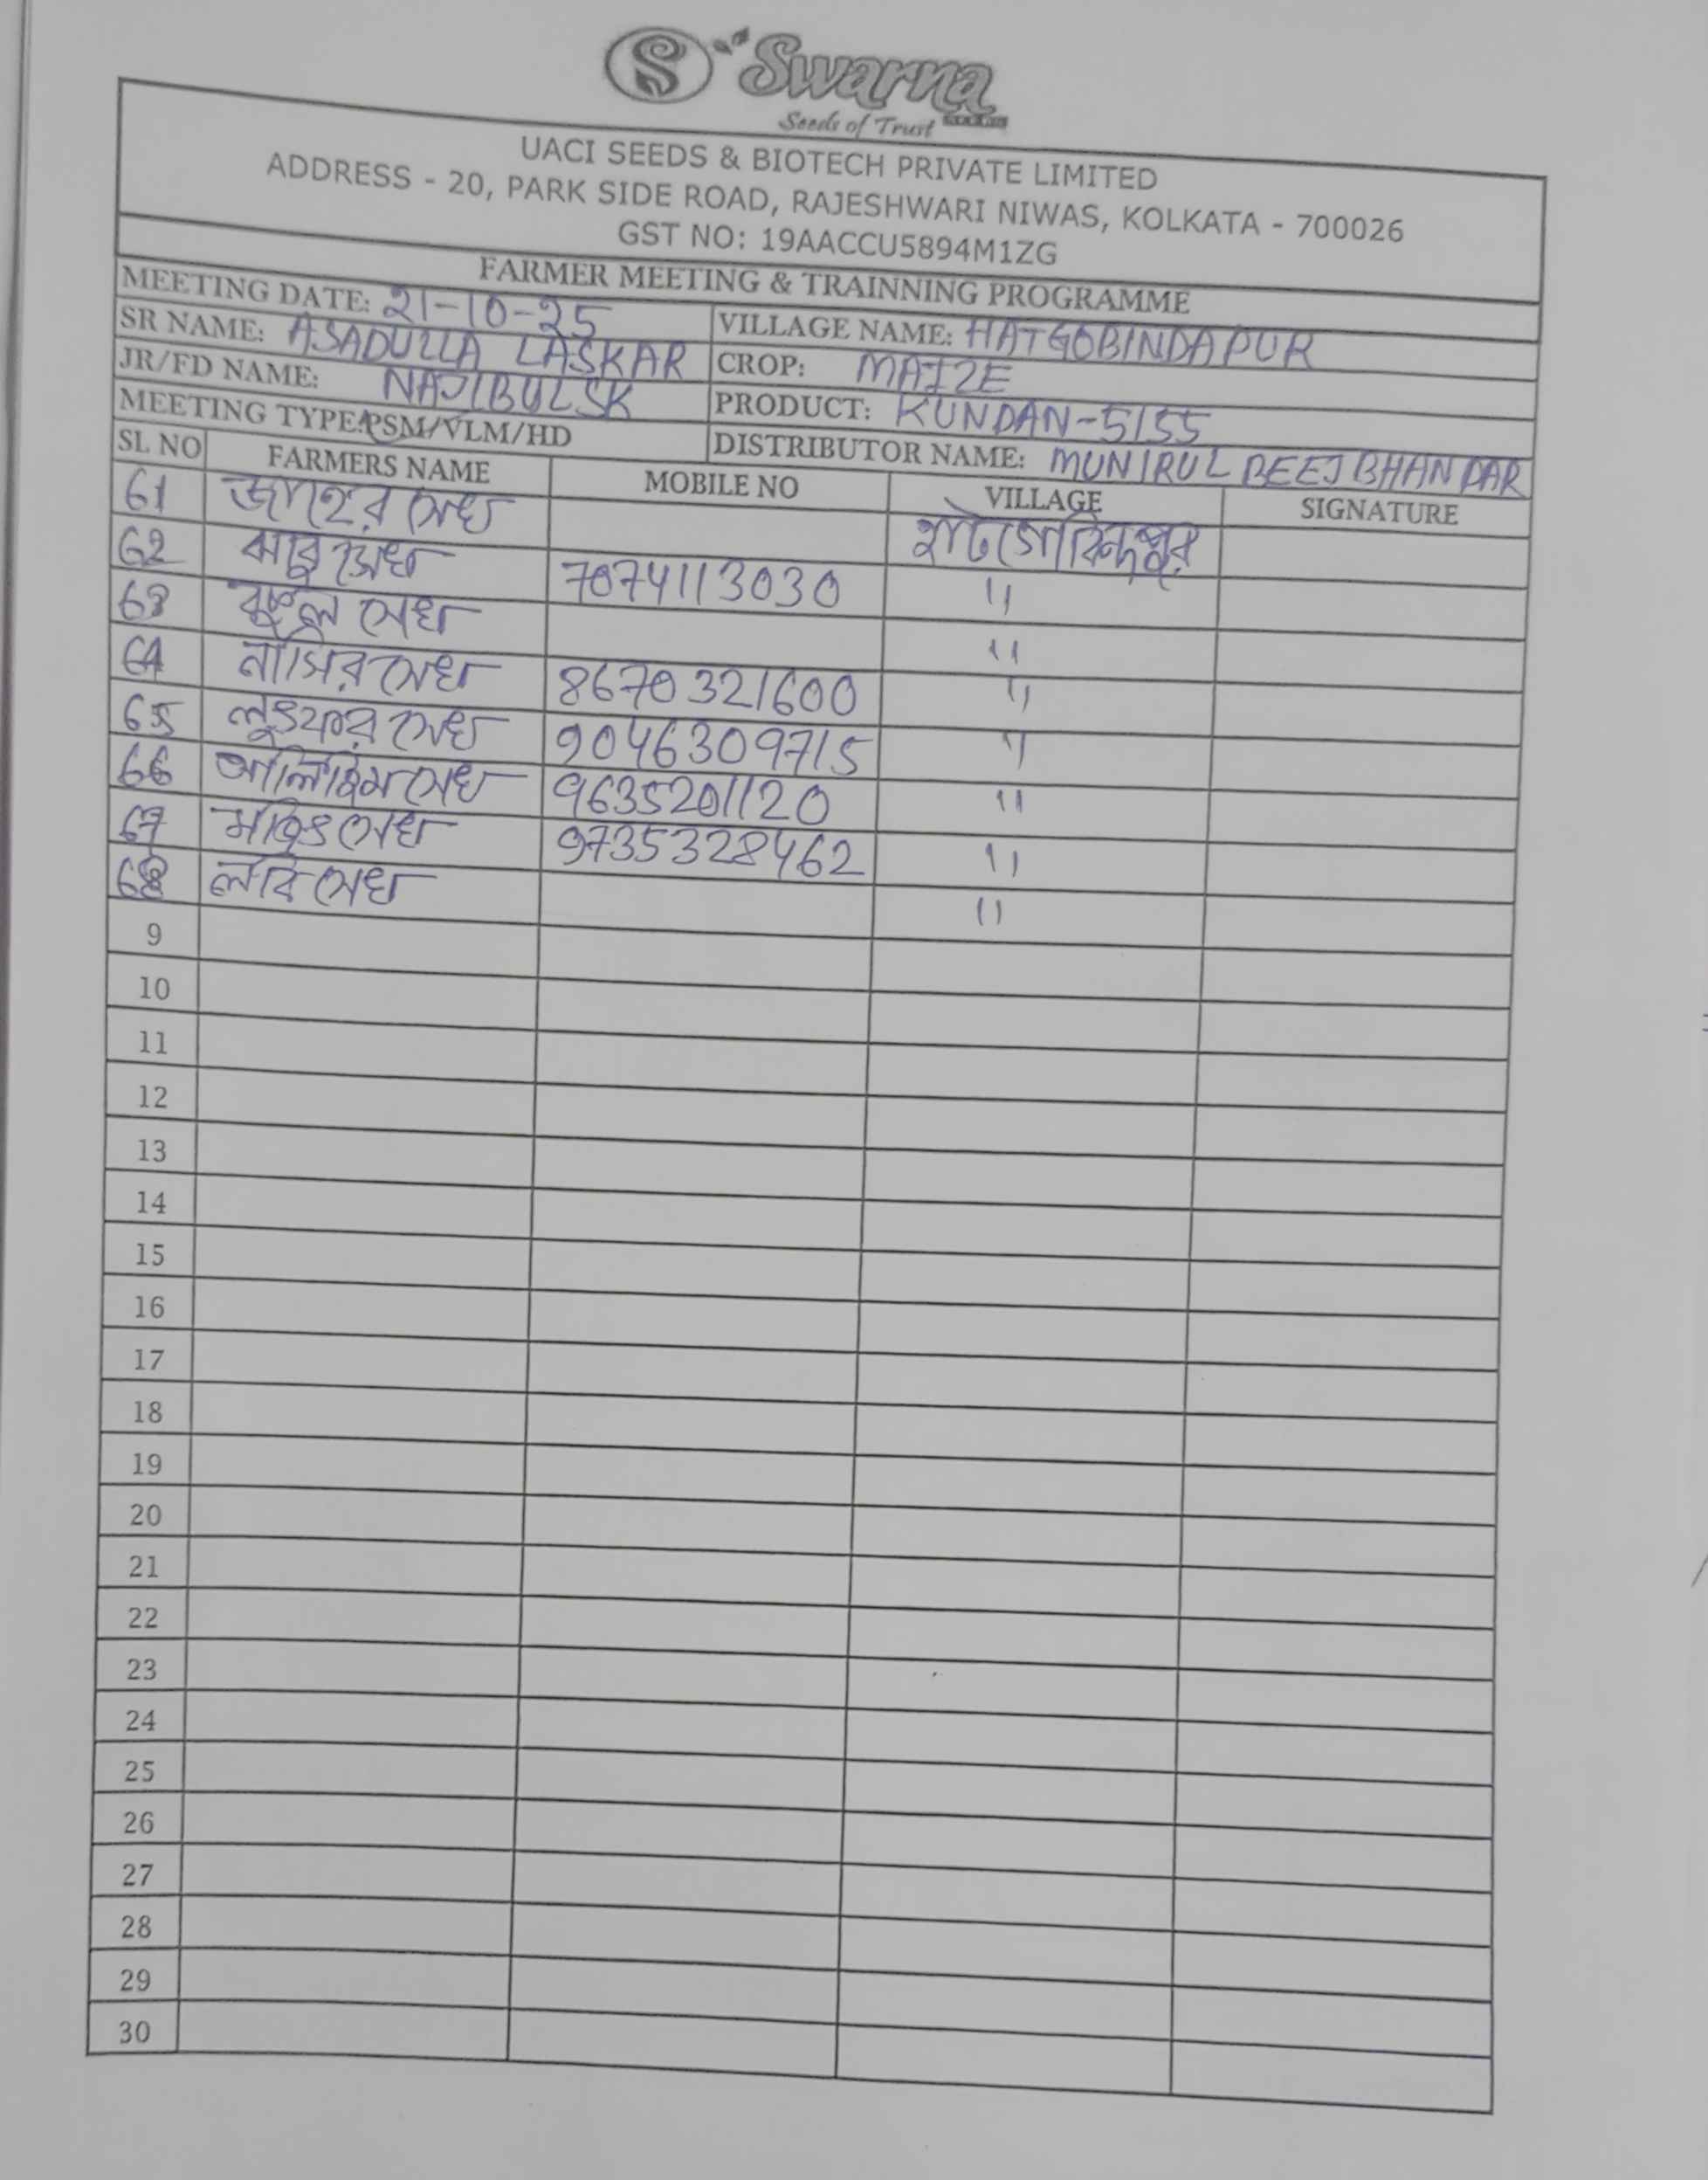 Swarna
Seeds of Trust
UACI SEEDS & BIOTECH PRIVATE LIMITED
ADDRESS - 20, PARK SIDE ROAD, RAJESHWARI NIWAS, KOLKATA - 700026
GST NO: 19AACCU5894M1ZG
FARMER MEETING & TRAINNING PROGRAMME
MEETING DATE: 21-10-25 VILLAGE NAME: HATGOBINDAPUR
SR NAME: ASADULLA LASKAR CROP: MAIZE
JR/FD NAME: NAJIBUL SK PRODUCT: KUNDAN-5155
MEETING TYPE:PSM/VLM/HD DISTRIBUTOR NAME: MUNIRUL BEEJ BHANDAR
SL NO FARMERS NAME MOBILE NO VILLAGE SIGNATURE
61 জাহের সেখ হাটগোবিন্দপুর
62 সেখ 7074113030 "
63 সেখ "
64 নাসির সেখ 8670321600 "
65 লুৎফার সেখ 9046309715 "
66 সেখ 9635201120 "
67 সেখ 9735328462 "
68 লবি সেখ "
9
10
11
12
13
14
15
16
17
18
19
20
21
22
23
24
25
26
27
28
29
30